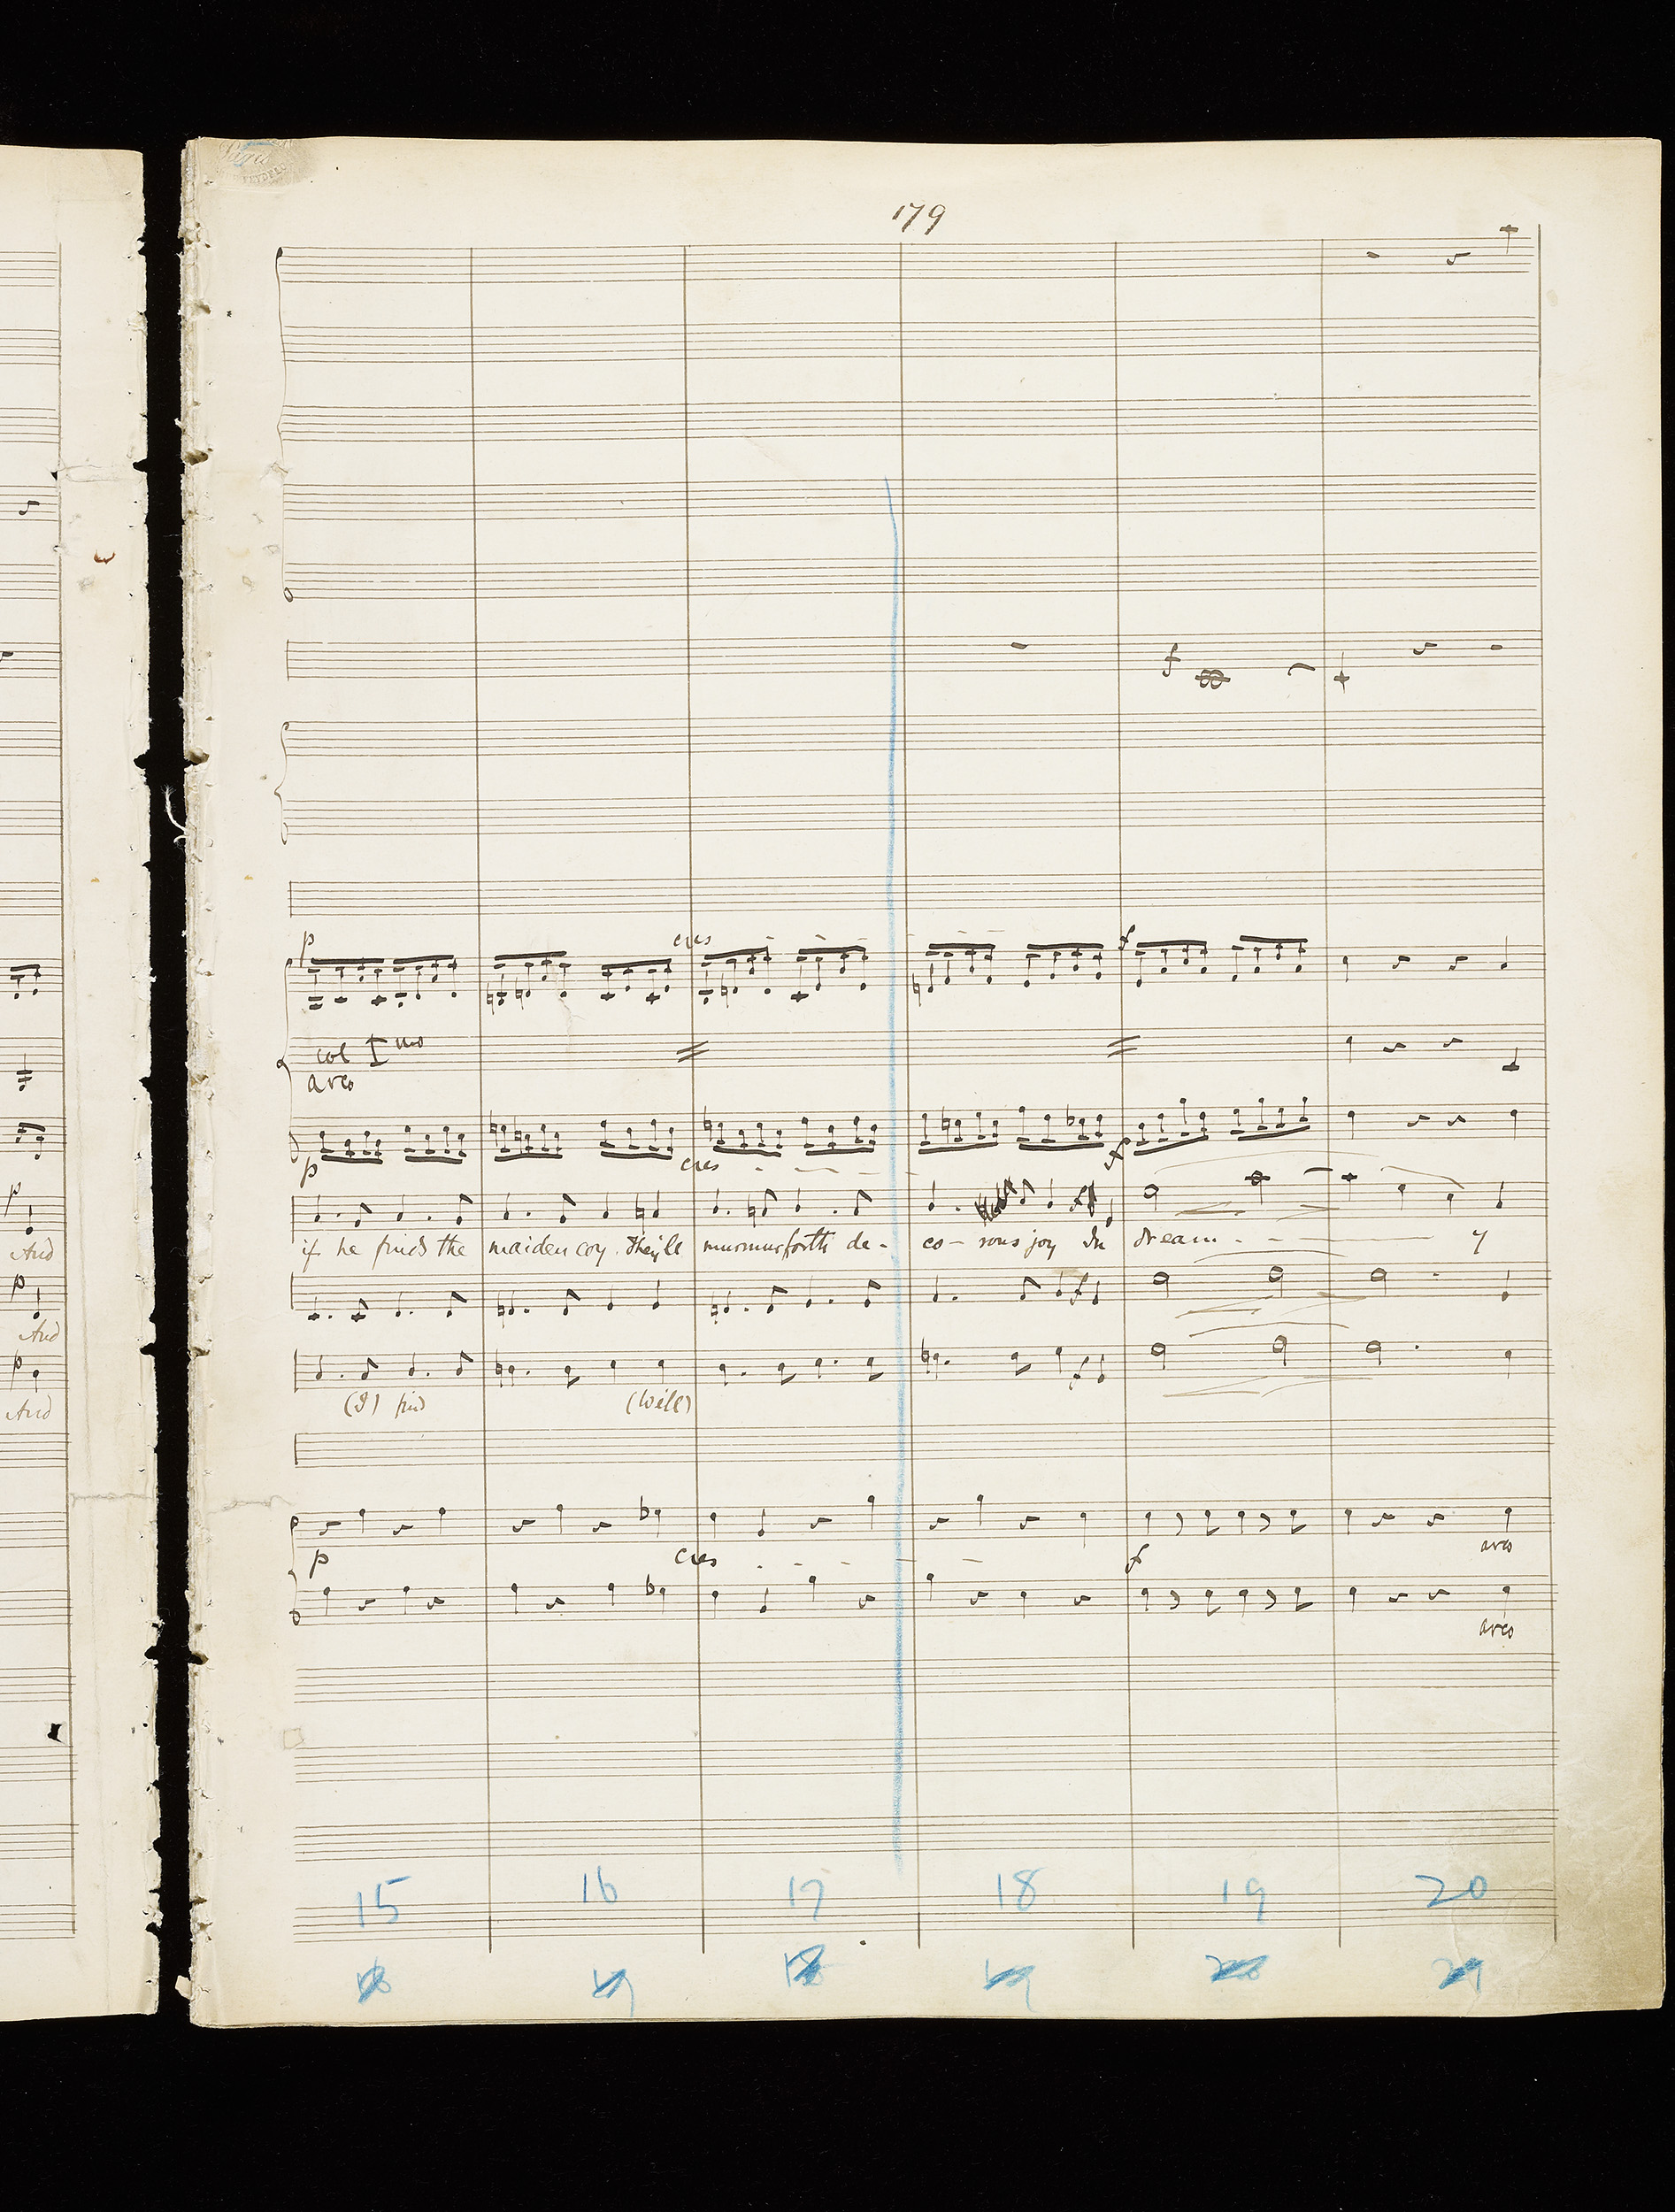 179
p
cres
f
col Imo
arco
p
cres
f
p
And
if he finds the maiden coy, They'll murmur forth de- co- rous joy In dream - - y
p
f
And
p
f
And
(I) find
(Will)
p
cres
f
arco
arco
15 16 17 18 19 20